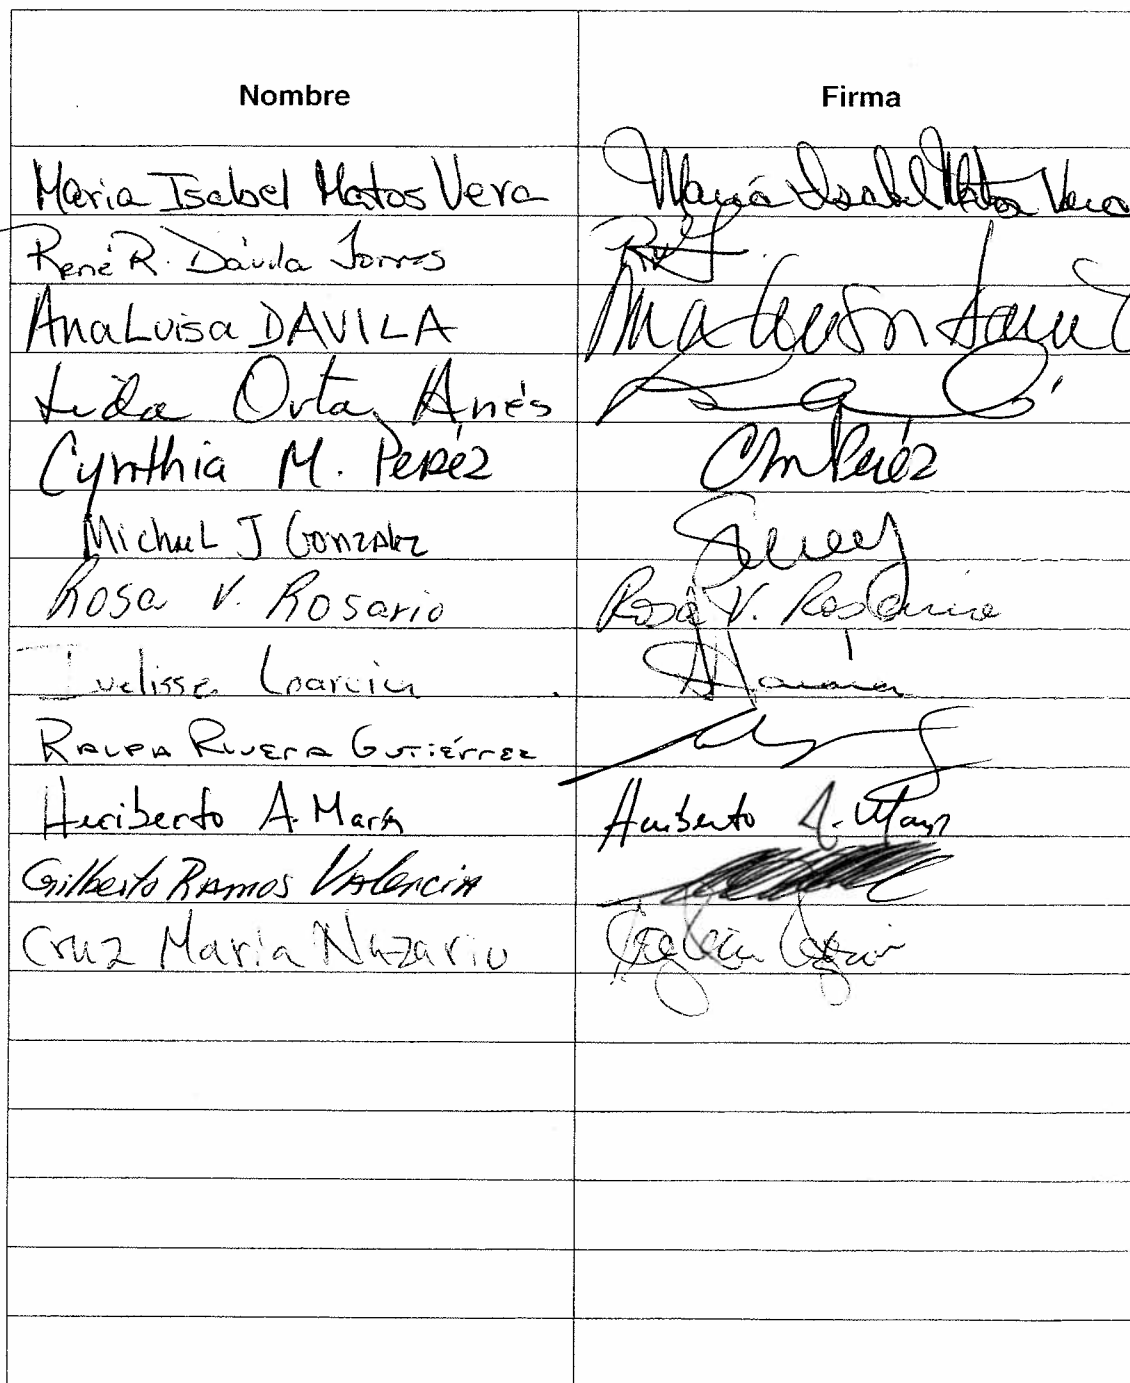 Nombre Firma
Maria Isabel Matos Vera María Isabel Matos Vera
René R. Dávila Torres
Ana Luisa DAVILA
Lida Orta Anés
Cynthia M. Peréz CM Peréz
Michael J Gonzalez
Rosa V. Rosario Rosa V. Rosario
Ivelisse Garcia
Ralph Rivera Gutiérrez
Heriberto A. Marín Heriberto A. Marín
Gilberto Ramos Valencia
Cruz María Nazario